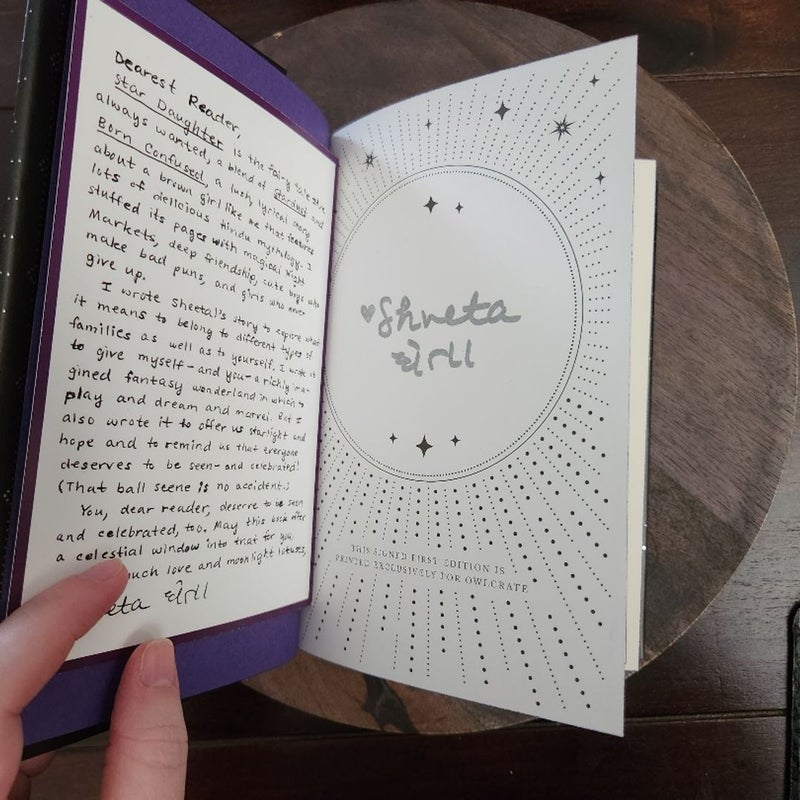 Dearest Reader,
Star Daughter is the fairy tale I've
always wanted, a blend of Stardust and
Born Confused, a lush, lyrical story
about a brown girl like me that features
lots of delicious Hindu mythology. I
stuffed its pages with magical Night
Markets, deep friendship, cute boys who
make bad puns, and girls who never
give up.
I wrote Sheetal's story to explore what
it means to belong to different types of
families as well as to yourself. I wrote it
to give myself-and you-a richly ima-
gined fantasy wonderland in which to
play and dream and marvel. But I
also wrote it to offer us starlight and
hope and to remind us that everyone
deserves to be seen-and celebrated!
(That ball scene is no accident.)
You, dear reader, deserve to be seen
and celebrated, too. May this book offer
a celestial window into that for you.
much love and moonlight lotuses,
eta
♥Shveta
THIS SIGNED FIRST EDITION IS
PRINTED EXCLUSIVELY FOR OWLCRATE